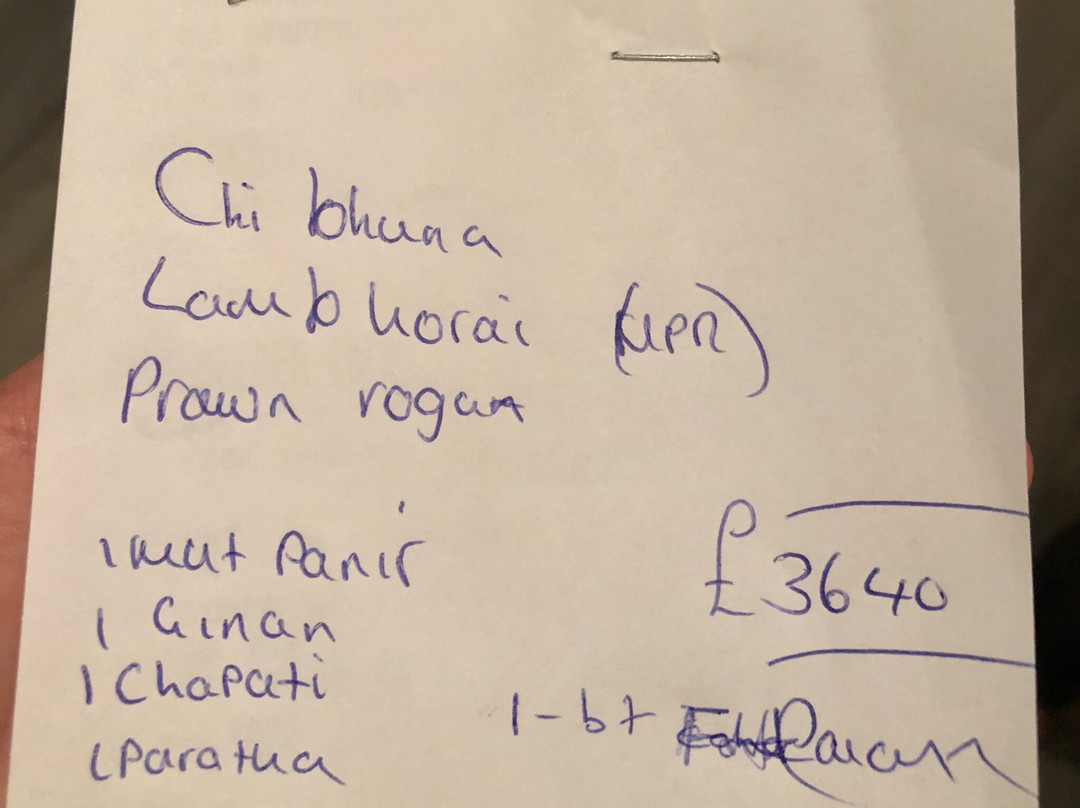 Chi bhuna
Lamb korai (MPR)
Prawn rogan
1 mut Panir
1 G.nan
1 Chapati
1 Paratha
£3640
1-bt